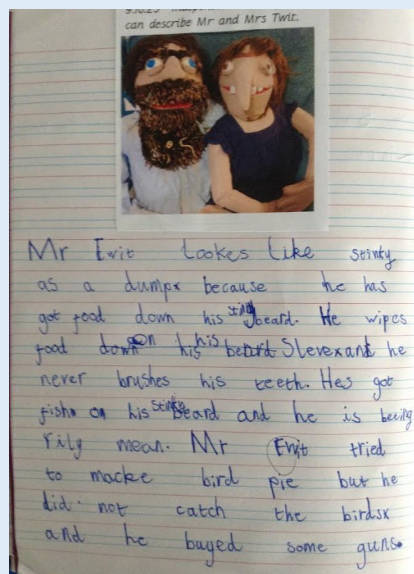 can describe Mr and Mrs Twit.
Mr Ewit Lookes Like stinky
as a dumpx because he has
got food down his stinky beard. He wipes
food on his Slevexand he
never brushes his teeth. Hes got
fishe on his stinky Beard and he is beeing
rily mean. Mr Ewit tried
to macke bird pie but he
did not catch the birdsx
and he buyed some guns.